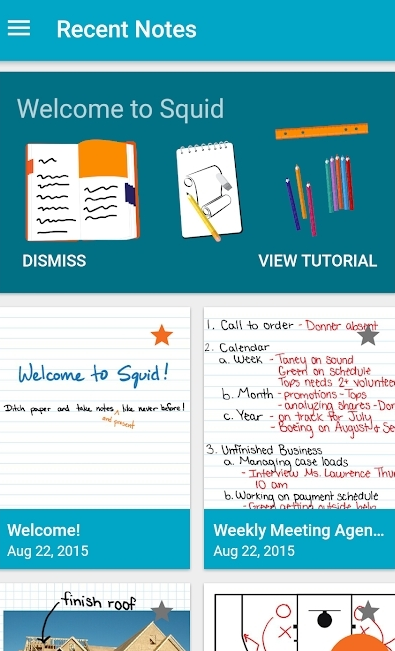 Recent Notes
Welcome to Squid
DISMISS
VIEW TUTORIAL
Welcome to Squid!
Ditch paper and take notes ^ like never before!
and present
Welcome!
Aug 22, 2015
1. Call to order - Donner absent
2. Calendar
a. Week - Taney on sound
Green on schedule
Tops needs 2+ voluntee
b. Month - promotions - Tops
- analyzing shares - Don
c. Year - on track for July
- Boeing on August & Se
3. Unfinished Business
a. Managing case loads
- Interview Ms. Lawrence Thu
10 am
b. Working on payment schedule
- Green getting outside help
Weekly Meeting Agen...
Aug 22, 2015
finish roof